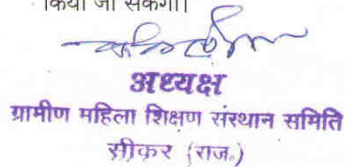 किया जा सकेगा।
अध्यक्ष
ग्रामीण महिला शिक्षण संस्थान समिति
सीकर (राज.)